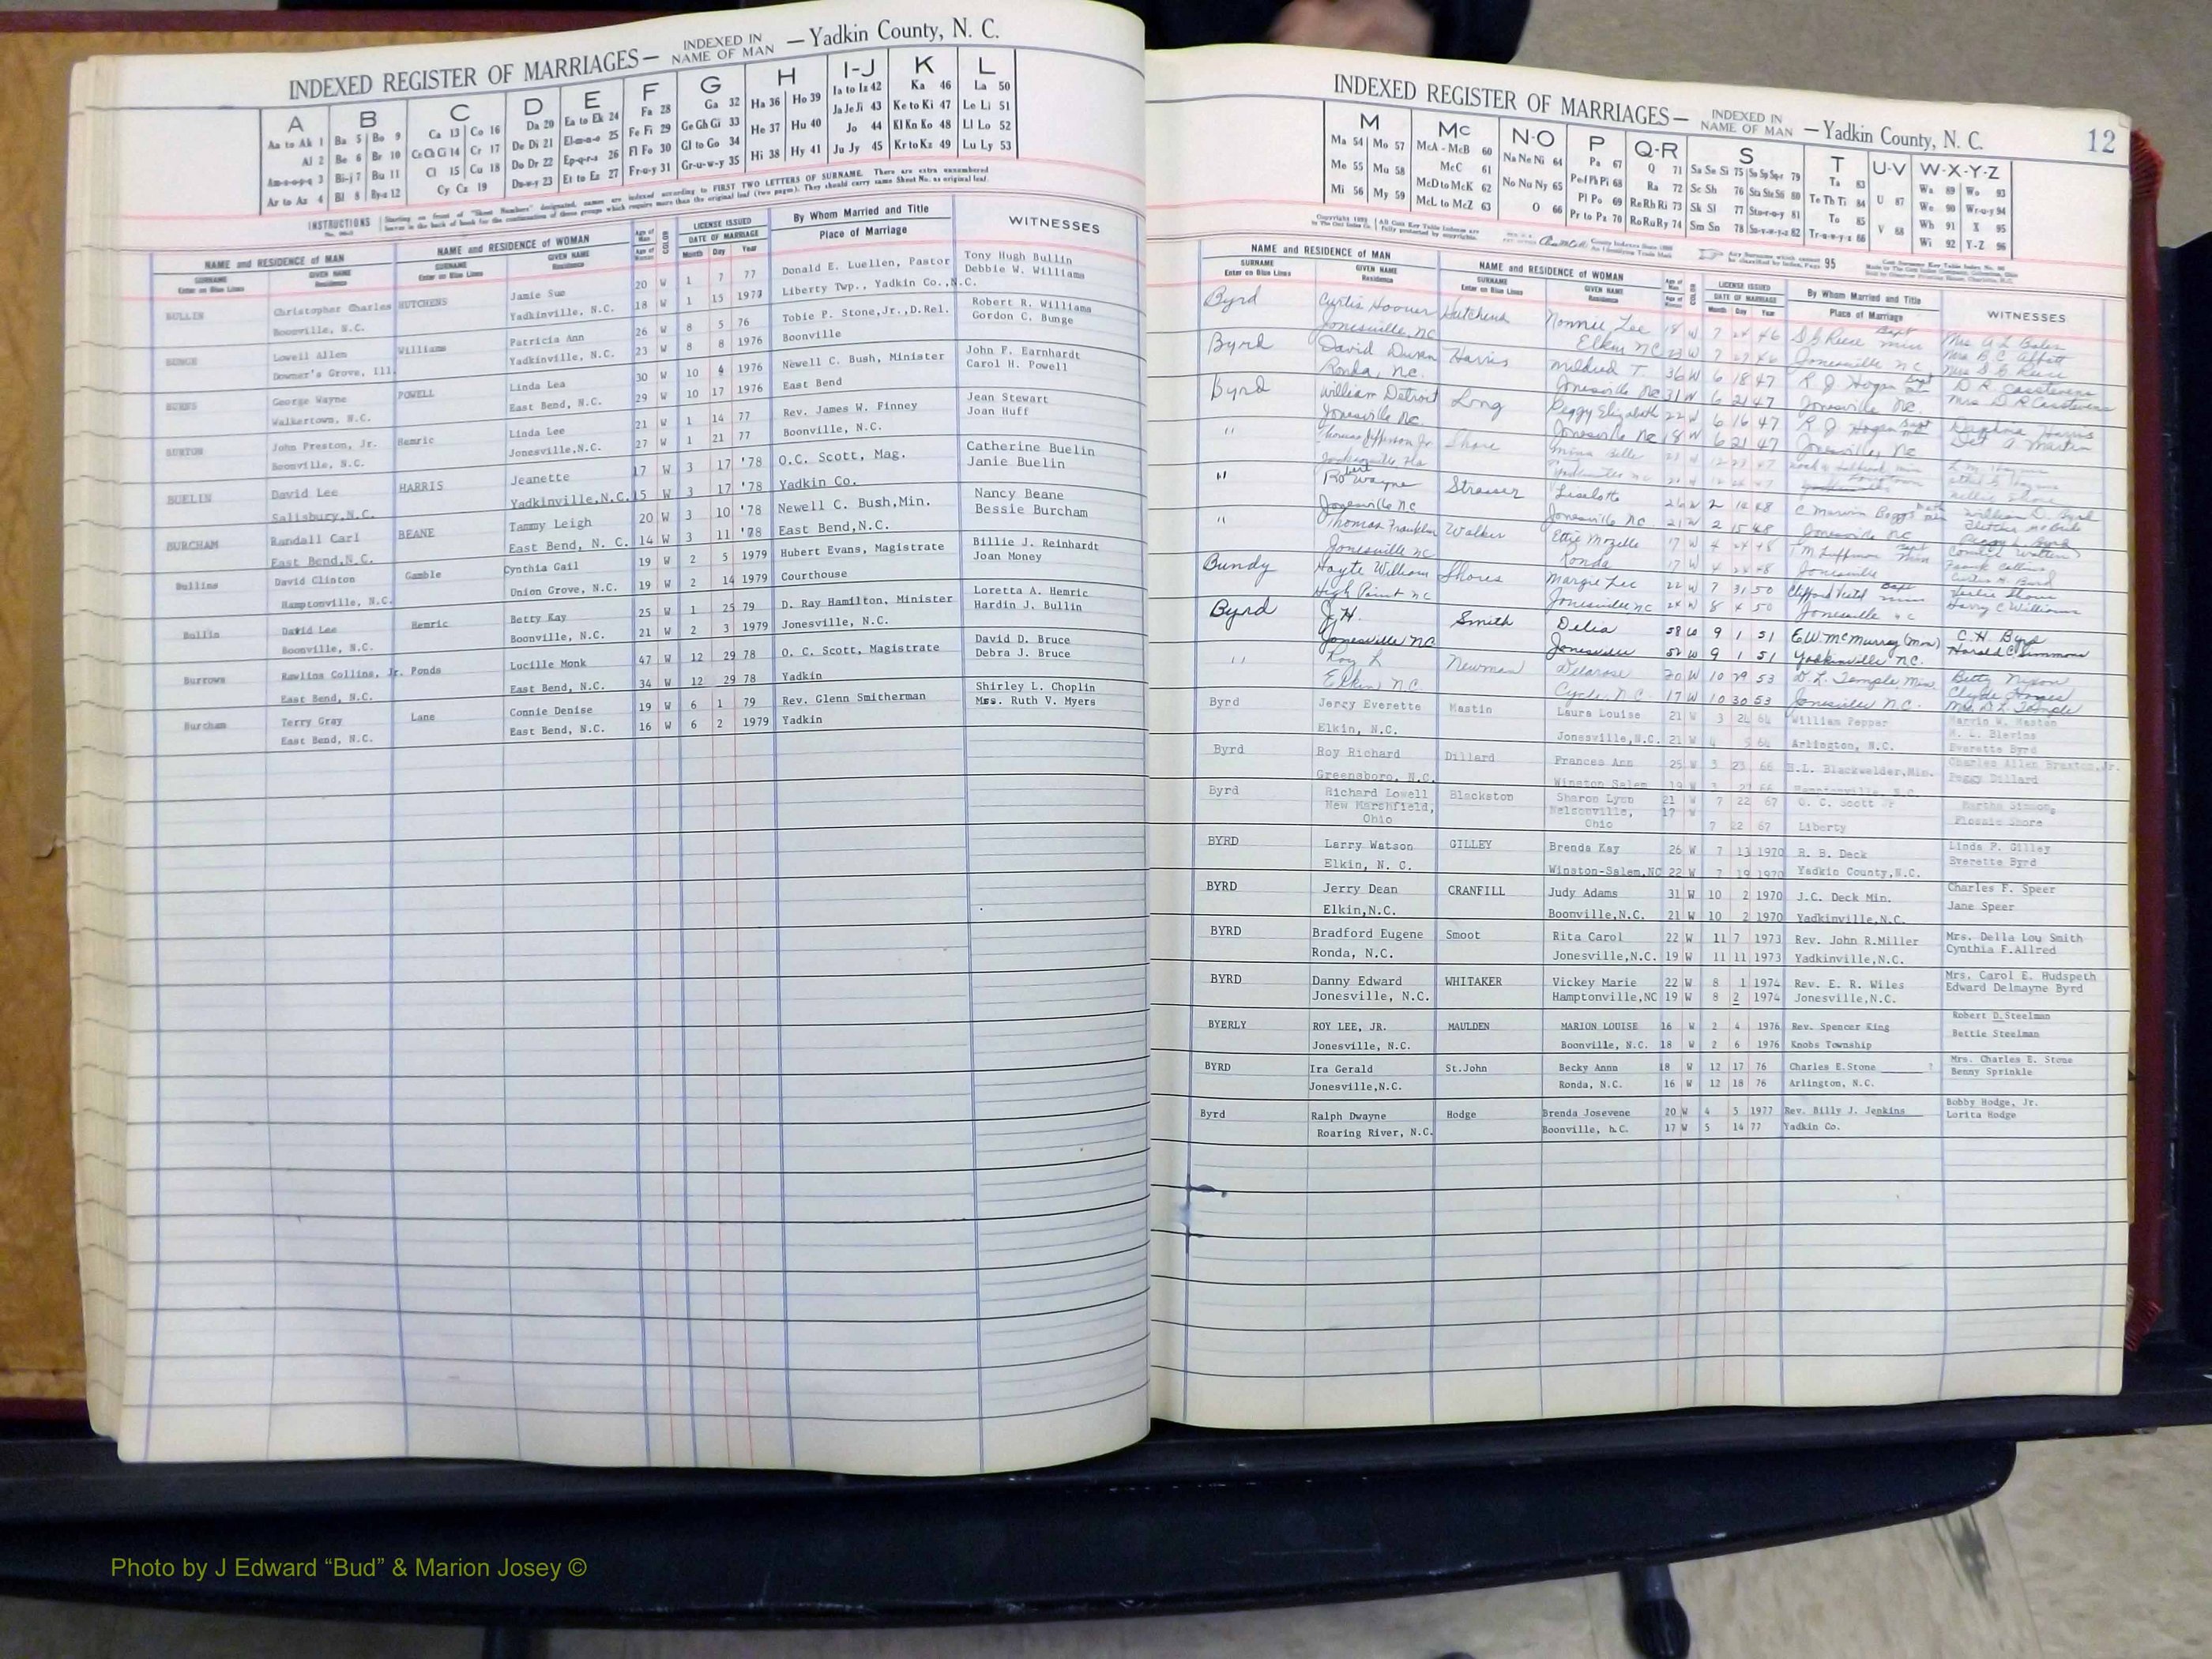 INDEXED REGISTER OF MARRIAGES— INDEXED IN NAME OF MAN —Yadkin County, N. C.
A B C D E F G H I-J K L
Aa to Ak 1 Ba 5 Bo 9 Ca 13 Co 16 Da 20 Ea to Ek 24 Fa 28 Ga 32 Ha 36 Ho 39 Ia to Iz 42 Ka 46 La 50
Al 2 Be 6 Br 10 Ce Ch Ci 14 Cr 17 De Di 21 El-m-n-o 25 Fe Fi 29 Ge Gh Gi 33 He 37 Hu 40 Ja Je Ji 43 Ke to Ki 47 Le Li 51
Am-n-o-p-q 3 Bi-j 7 Bu 11 Cl 15 Cu 18 Do Dr 22 Ep-q-r-s 26 Fl Fo 30 Gl to Go 34 Hi 38 Hy 41 Jo 44 Kl Kn Ko 48 Ll Lo 52
Ar to Az 4 Bl 8 By-z 12 Cy Cz 19 Du-w-y 23 Et to Ez 27 Fr-u-y 31 Gr-u-w-y 35 Ju Jy 45 Kr to Kz 49 Lu Ly 53
INSTRUCTIONS
NAME and RESIDENCE of MAN NAME and RESIDENCE of WOMAN Age of Man Age of Woman COLOR LICENSE ISSUED DATE OF MARRIAGE By Whom Married and Title WITNESSES
SURNAME Enter on Blue Lines GIVEN NAME Residence SURNAME Enter on Blue Lines GIVEN NAME Residence Month Day Year Place of Marriage
BULLIN Christopher Charles HUTCHENS Jamie Sue 20 W 1 7 77 Donald E. Luellen, Pastor Tony Hugh Bullin
Boonville, N.C. Yadkinville, N.C. 18 W 1 15 1977 Liberty Twp., Yadkin Co.,N.C. Debbie W. Williams
BUNGE Lowell Allen Williams Patricia Ann 26 W 8 5 76 Tobie P. Stone,Jr.,D.Rel. Robert R. Williams
Downer's Grove, Ill. Yadkinville, N.C. 23 W 8 8 1976 Boonville Gordon C. Bunge
BURNS George Wayne POWELL Linda Lea 30 W 10 4 1976 Newell C. Bush, Minister John F. Earnhardt
Walkertown, N.C. East Bend, N.C. 29 W 10 17 1976 East Bend Carol H. Powell
BURTON John Preston, Jr. Hemric Linda Lee 21 W 1 14 77 Rev. James W. Finney Jean Stewart
Boonville, N.C. Jonesville,N.C. 27 W 1 21 77 Boonville, N.C. Joan Huff
BUELIN David Lee HARRIS Jeanette 17 W 3 17 '78 O.C. Scott, Mag. Catherine Buelin
Salisbury,N.C. Yadkinville,N.C. 15 W 3 17 '78 Yadkin Co. Janie Buelin
BURCHAM Randall Carl BEANE Tammy Leigh 20 W 3 10 '78 Newell C. Bush,Min. Nancy Beane
East Bend,N.C. East Bend, N. C. 14 W 3 11 '78 East Bend,N.C. Bessie Burcham
Bullins David Clinton Gamble Cynthia Gail 19 W 2 5 1979 Hubert Evans, Magistrate Billie J. Reinhardt
Hamptonville, N.C. Union Grove, N.C. 19 W 2 14 1979 Courthouse Joan Money
Bullin David Lee Hemric Betty Kay 25 W 1 25 79 D. Ray Hamilton, Minister Loretta A. Hemric
Boonville, N.C. Boonville, N.C. 21 W 2 3 1979 Jonesville, N.C. Hardin J. Bullin
Burrows Rawlins Collins, Jr. Ponds Lucille Monk 47 W 12 29 78 O. C. Scott, Magistrate David D. Bruce
East Bend, N.C. East Bend, N.C. 34 W 12 29 78 Yadkin Debra J. Bruce
Burcham Terry Gray Lane Connie Denise 19 W 6 1 79 Rev. Glenn Smitherman Shirley L. Choplin
East Bend, N.C. East Bend, N.C. 16 W 6 2 1979 Yadkin Mrs. Ruth V. Myers
INDEXED REGISTER OF MARRIAGES— INDEXED IN NAME OF MAN —Yadkin County, N. C. 12
M Mc N-O P Q-R S T U-V W-X-Y-Z
Ma 54 Mo 57 McA - McB 60 Na Ne Ni 64 Pa 67 Q 71 Sa Se Si 75 Sn Sp Sq-r 79 Ta 83 U 87 Wa 89 Wo 93
Me 55 Mu 58 McC 61 No Nu Ny 65 Pe Pf Ph Pi 68 Ra 72 Sc Sh 76 Sta Ste Sti 80 Te Th Ti 84 V 88 We 90 Wr-u-y 94
Mi 56 My 59 McD to McK 62 O 66 Pl Po 69 Re Rh Ri 73 Sk Sl 77 Sto-r-u-y 81 To 85 Wh 91 X 95
McL to McZ 63 Pr to Pz 70 Ro Ru Ry 74 Sm So 78 Su-v-w-y-z 82 Tr-u-w-y-z 86 Wi 92 Y-Z 96
NAME and RESIDENCE of MAN NAME and RESIDENCE of WOMAN Age of Man Age of Woman COLOR LICENSE ISSUED DATE OF MARRIAGE By Whom Married and Title WITNESSES
SURNAME Enter on Blue Lines GIVEN NAME Residence SURNAME Enter on Blue Lines GIVEN NAME Residence Month Day Year Place of Marriage
Byrd Curtis Hoover Hutchens Nonnie Lee 18 W 7 26 46 S G Reese Bapt min Mrs A L Bates
Jonesville, NC Elkin NC 23 W 7 27 46 Jonesville NC Mrs B. C. Abbott
Mrs S G Reese
Byrd David Duran Harris Mildred T. 36 W 6 18 47 R J Hogan Bapt D R Casstevens
Ronda, NC. Jonesville NC 31 W 6 21 47 Jonesville NC. Mrs D R Casstevens
Byrd William Detroit Long Peggy Elizabeth 22 W 6 16 47 R J Hogan Bapt Daphne Harris
Jonesville NC. Jonesville NC 18 W 6 21 47 Jonesville, NC A Martin
" Thomas Jefferson Jr Shore
" Robert Wayne Strasser Liselotte 26 W 2 14 48 C Marvin Boggs William D. Byrd
Jonesville NC Jonesville NC. 21 W 2 15 48 Jonesville NC Fletcher McBride
Peggy L Byrd
" Thomas Franklin Walker Ettie Mozelle 17 W 4 24 48 T M Luffman Bapt Min
Jonesville NC Ronda 17 W 4 24 48 Jonesville Frank Collins
Curtis H. Byrd
Bundy Hoyte William Shores Margie Lee 22 W 7 31 50 Clifford Bapt min Leslie Shore
High Point NC Jonesville NC 24 W 8 4 50 Jonesville NC Harry C Williams
Byrd J. H. Smith Delia 58 W 9 1 51 E.W. McMurray (Min) C. H. Byrd
Jonesville NC Jonesville 52 W 9 1 51 Yadkinville N.C. Harold C. Simmons
" Roy L Newman Delarose 20 W 10 29 53 D. L. Temple, Min. Betty Nixon
Elkin N.C. Cycle, N.C. 17 W 10 30 53 Jonesville N.C. Clyde
Mrs D L Temple
Byrd Jerry Everette Mastin Laura Louise 21 W 3 24 64 William Pepper Marvin W. Maston
Elkin, N.C. Jonesville,N.C. 21 W 4 5 64 Arlington, N.C. M. L. Blevins
Everette Byrd
Byrd Roy Richard Dillard Frances Ann 25 W 3 23 66 H.L. Blackwelder,Min. Charles Allen Braxton,Jr.
Greensboro, N.C. Winston Salem 19 W 3 27 66 Hamptonville, N.C. Peggy Dillard
Byrd Richard Lowell Blackston Sharon Lynn 21 W 7 22 67 O. C. Scott JP Martha Simmons
New Marshfield, Nelsonville, 17 W
Ohio Ohio 7 22 67 Liberty Flossie Shore
BYRD Larry Watson GILLEY Brenda Kay 26 W 7 13 1970 R. B. Deck Linda P. Gilley
Elkin, N. C. Winston-Salem,NC 22 W 7 19 1970 Yadkin County,N.C. Everette Byrd
BYRD Jerry Dean CRANFILL Judy Adams 31 W 10 2 1970 J.C. Deck Min. Charles F. Speer
Elkin,N.C. Boonville,N.C. 21 W 10 2 1970 Yadkinville,N.C. Jane Speer
BYRD Bradford Eugene Smoot Rita Carol 22 W 11 7 1973 Rev. John R.Miller Mrs. Della Lou Smith
Ronda, N.C. Jonesville,N.C. 19 W 11 11 1973 Yadkinville,N.C. Cynthia F.Allred
BYRD Danny Edward WHITAKER Vickey Marie 22 W 8 1 1974 Rev. E. R. Wiles Mrs. Carol E. Hudspeth
Jonesville, N.C. Hamptonville,NC 19 W 8 2 1974 Jonesville,N.C. Edward Delmayne Byrd
BYERLY ROY LEE, JR. MAULDEN MARION LOUISE 16 W 2 4 1976 Rev. Spencer King Robert D.Steelman
Jonesville, N.C. Boonville, N.C. 18 W 2 6 1976 Knobs Township Bettie Steelman
BYRD Ira Gerald St.John Becky Annn 18 W 12 17 76 Charles E.Stone ? Mrs. Charles E. Stone
Jonesville,N.C. Ronda, N.C. 16 W 12 18 76 Arlington, N.C. Benny Sprinkle
Byrd Ralph Dwayne Hodge Brenda Josevene 20 W 4 5 1977 Rev. Billy J. Jenkins Bobby Hodge, Jr.
Roaring River, N.C. Boonville, N.C. 17 W 5 14 77 Yadkin Co. Lorita Hodge
Photo by J Edward “Bud” & Marion Josey ©